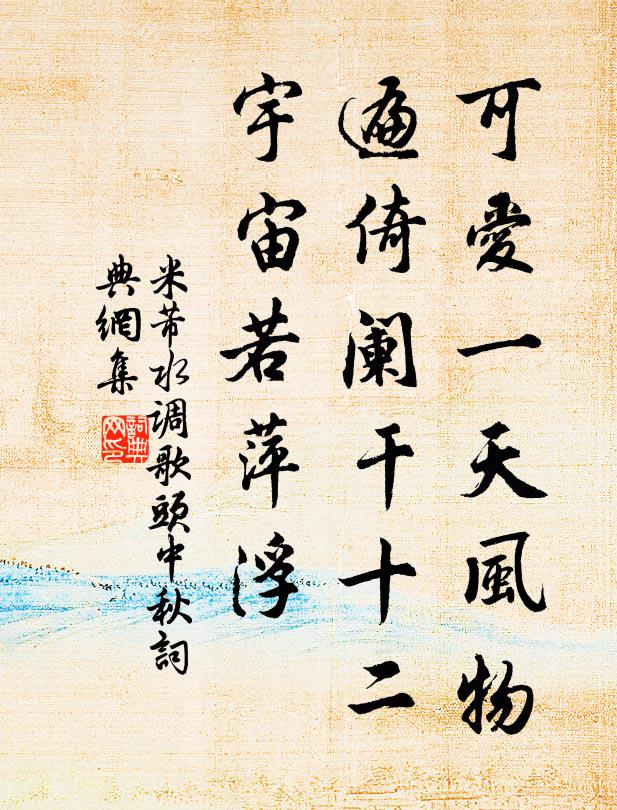 可愛一天風物
遍倚闌干十二
宇宙若萍浮
米芾水调歌頭中秋詞
典網集
詞典網印